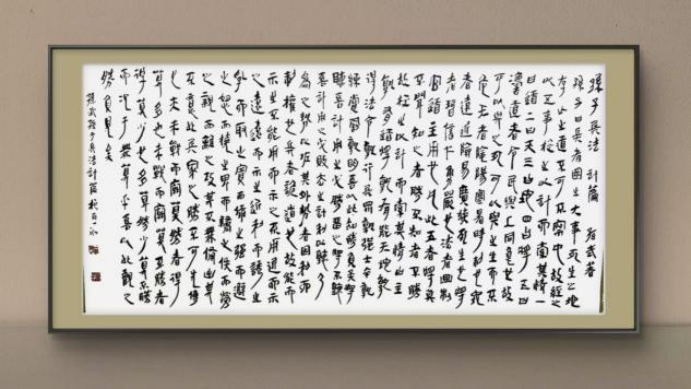 孫子兵法 計篇
孫子曰兵者國之大事死生之地
存亡之道不可不察也故經之
以五事校之以計而索其情一
曰道二曰天三曰地四曰將五曰
法道者令民與上同意也故
可以與之死可以與之生而不
危天者陰陽寒暑時制也地
者遠近險易廣狹死生也將
者智信仁勇嚴也法者曲制
官道主用也凡此五者將莫
不聞知之者勝不知者不勝
故校之以計而索其情曰主
孰有道將孰有能天地孰
得法令孰行兵眾孰強士卒孰
練賞罰孰明吾以此知勝負矣將
聽吾計用之必勝留之將不聽
吾計用之必敗去之計利以聽乃
為之勢以佐其外勢者因利而
制權也兵者詭道也故能而
示之不能用而示之不用近而示
之遠遠而示之近利而誘之亂
而取之實而備之強而避
之怒而撓之卑而驕之佚而勞
之親而離之攻其不備出其
不意此兵家之勝不可先傳
也夫未戰而廟算勝者得
算多也未戰而廟算不勝者
得算少也多算勝少算不勝
而況于無算乎吾以此觀之
勝負見矣
孫武孫子兵法計篇